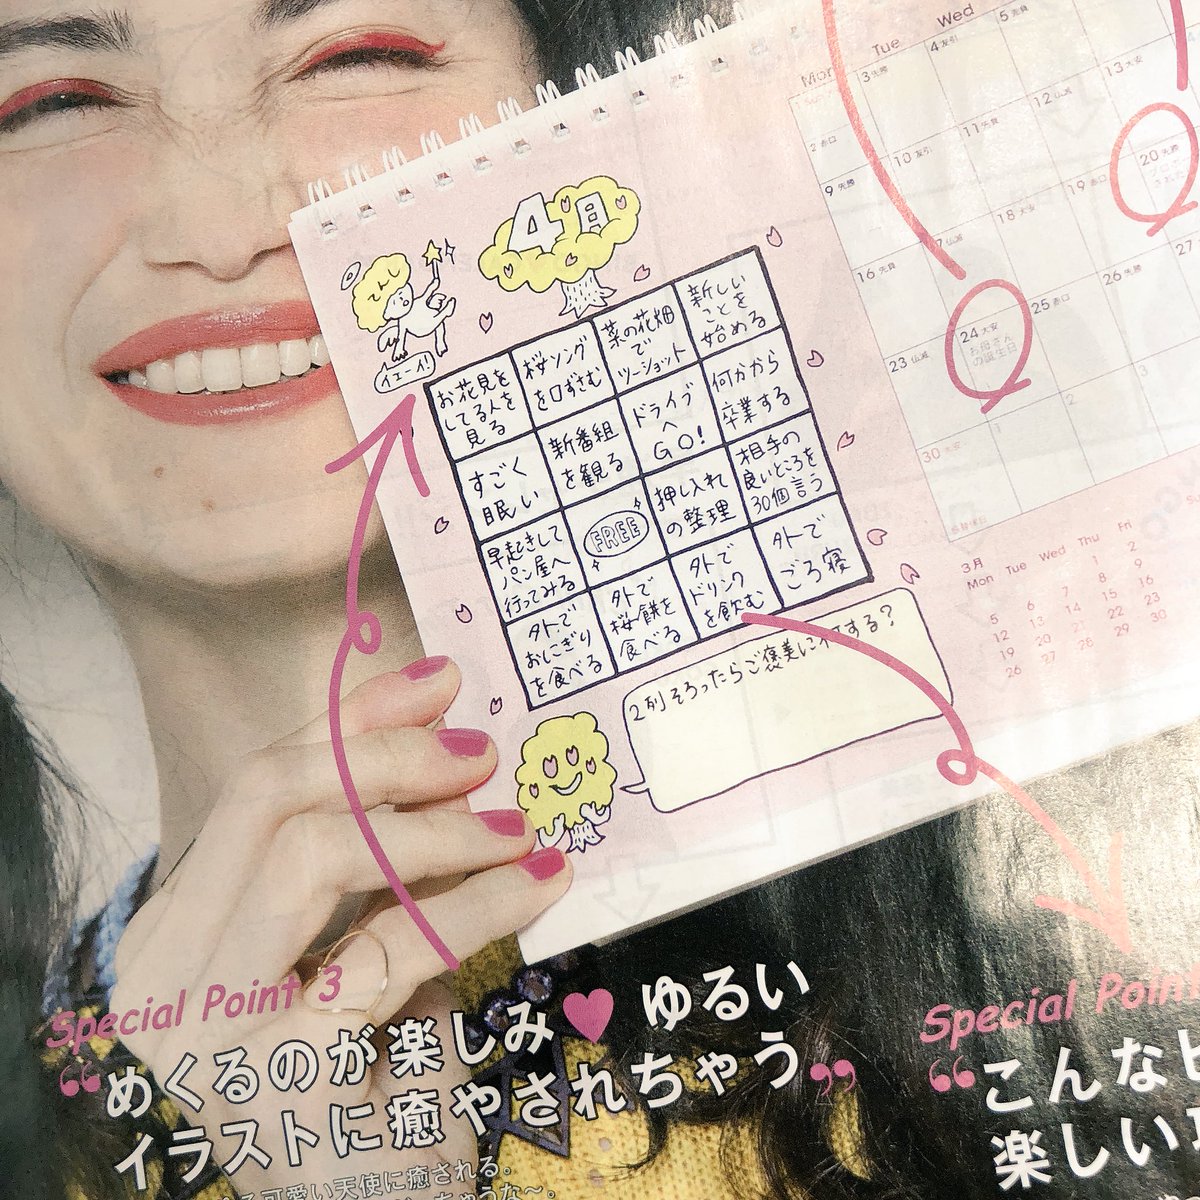 4月
てんし
イエーイ!
お花見を
してる人を
見る
桜ソング
を口ずさむ
菜の花畑
で
ツーショット
新しい
ことを
始める
すごく
眠い
新番組
を観る
ドライブ
へ
GO!
何かから
卒業する
早起きして
パン屋へ
行ってみる
FREE
押し入れ
の整理
相手の
良いところを
30個言う
外で
おにぎり
を食べる
外で
桜餅を
食べる
外で
ドリンク
を飲む
外で
ごろ寝
2列そろったらご褒美に何する?
Mon Tue Wed
2 赤口 3 先勝 4 友引 5 先負
9 先勝 10 友引 11 先負 12 仏滅 13 大安
16 先負 17 仏滅 18 大安 19 赤口 20 先勝
23 仏滅 24 大安 25 赤口 26 先勝 27
お母さん
の誕生日
30 大安 1 2
3月
Mon Tue Wed Thu Fri
1 2
5 6 7 8 9
12 13 14 15 16
19 20 21 22 23
26 27 28 29 30
Special Point 3
“めくるのが楽しみ♥ゆるい
イラストに癒やされちゃう”
可愛い天使に癒される。
ちゃうな〜。
Special Point
“こんなビ
楽しい